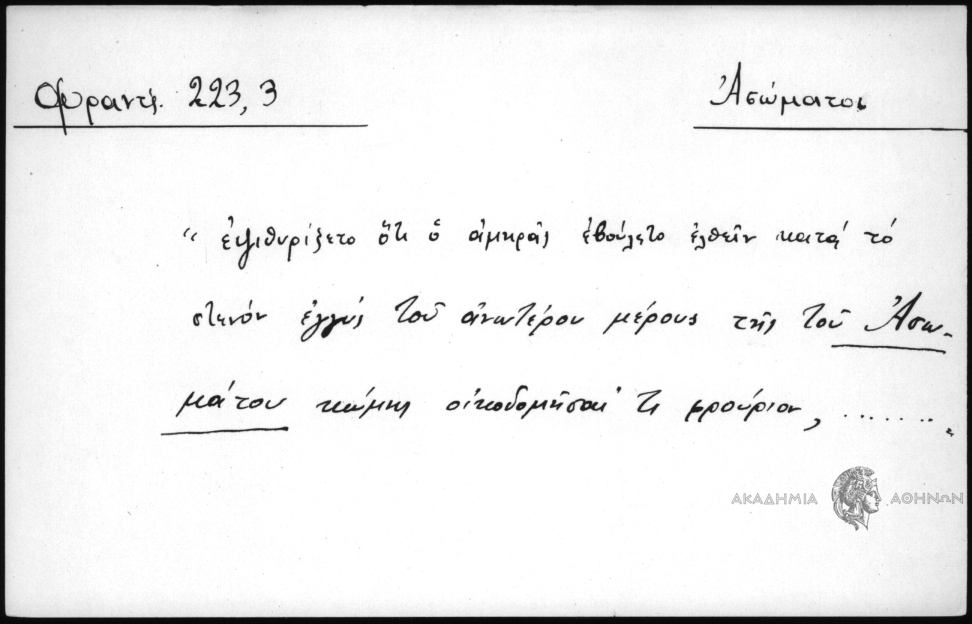 Φραντζ. 223, 3
Ἀσώματοι
“ ἐψιθυρίζετο ὅτι ὁ ἀμηρᾶς ἐβούλετο ἐλθεῖν κατὰ τὸ
στενὸν ἐγγὺς τοῦ ἀνωτέρου μέρους τῆς τοῦ Ἀσω-
μάτου κώμης οἰκοδομῆσαί τι φρούριον, ........ „
ΑΚΑΔΗΜΙΑ ΑΘΗΝΩΝ